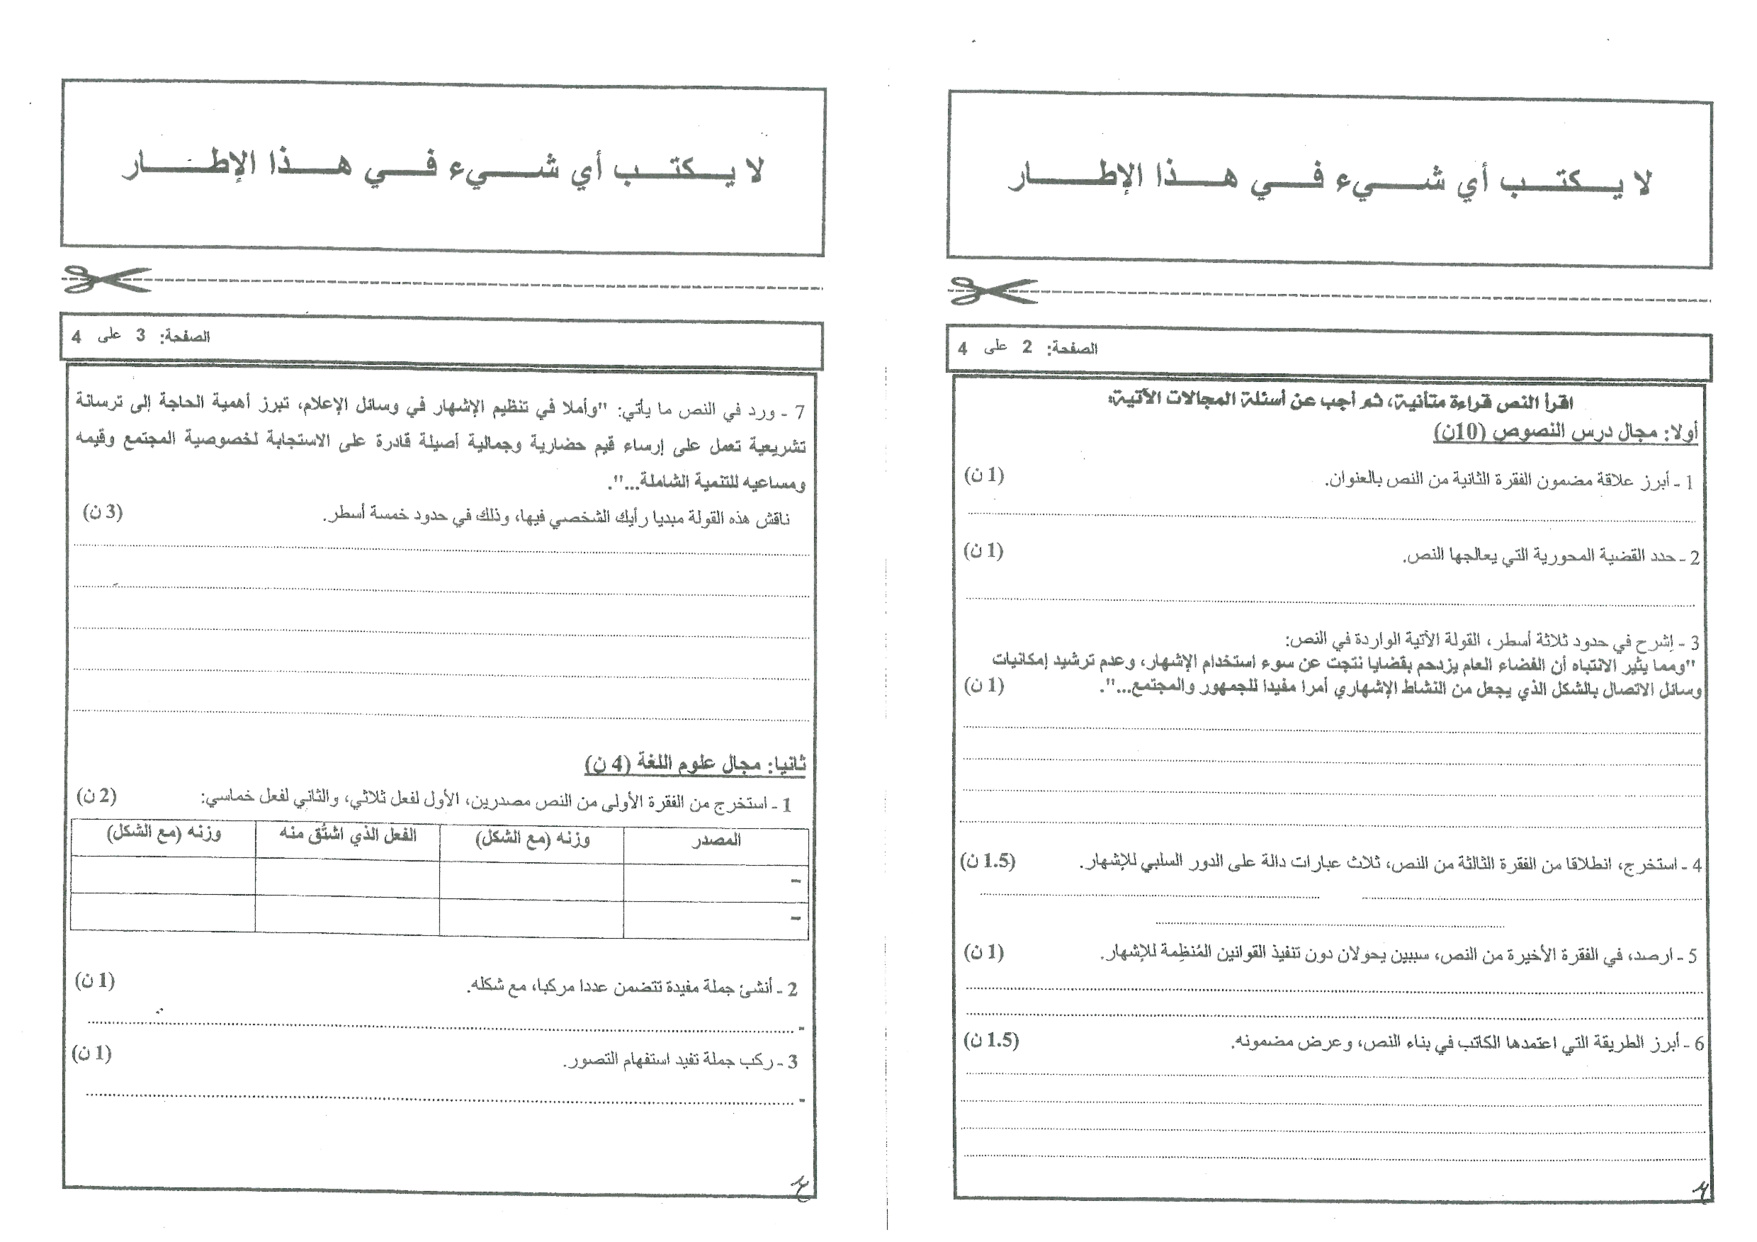 لا يـــكـتـــب أي شـــــيء فـــــي هـــــذا الإطـــــــار
الصفحة: 2 على 4
اقرأ النص قراءة متأنية، ثم أجب عن أسئلة المجالات الآتية:
أولا: مجال درس النصوص (10ن)
1 - أبرز علاقة مضمون الفقرة الثانية من النص بالعنوان. (1 ن)
2 - حدد القضية المحورية التي يعالجها النص. (1 ن)
3 - إشرح في حدود ثلاثة أسطر، القولة الآتية الواردة في النص:
"ومما يثير الانتباه أن الفضاء العام يزدحم بقضايا نتجت عن سوء استخدام الإشهار، وعدم ترشيد إمكانيات
وسائل الاتصال بالشكل الذي يجعل من النشاط الإشهاري أمرا مفيدا للجمهور والمجتمع...". (1 ن)
4 - استخرج، انطلاقا من الفقرة الثالثة من النص، ثلاث عبارات دالة على الدور السلبي للإشهار. (1.5 ن)
5 - ارصد، في الفقرة الأخيرة من النص، سببين يحولان دون تنفيذ القوانين المُنظِمة للإشهار. (1 ن)
6 - أبرز الطريقة التي اعتمدها الكاتب في بناء النص، وعرض مضمونه. (1.5 ن)
لا يـــكـتـــب أي شـــــيء فـــــي هـــــذا الإطـــــــار
الصفحة: 3 على 4
7 - ورد في النص ما يأتي: "وأملا في تنظيم الإشهار في وسائل الإعلام، تبرز أهمية الحاجة إلى ترسانة
تشريعية تعمل على إرساء قيم حضارية وجمالية أصيلة قادرة على الاستجابة لخصوصية المجتمع وقيمه
ومساعيه للتنمية الشاملة...".
ناقش هذه القولة مبديا رأيك الشخصي فيها، وذلك في حدود خمسة أسطر. (3 ن)
ثانيا: مجال علوم اللغة (4 ن)
1 - استخرج من الفقرة الأولى من النص مصدرين، الأول لفعل ثلاثي، والثاني لفعل خماسي: (2 ن)
المصدر وزنه (مع الشكل) الفعل الذي اشتُق منه وزنه (مع الشكل)
-
-
2 - أنشئ جملة مفيدة تتضمن عددا مركبا، مع شكله. (1 ن)
-
3 - ركب جملة تفيد استفهام التصور. (1 ن)
-